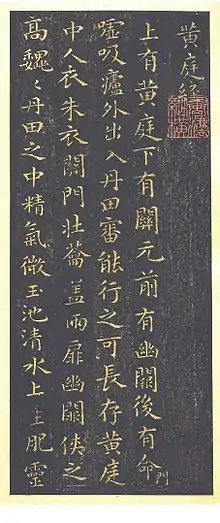 黃庭經
上有黃庭下有關元前有幽闕後有命門
噓吸廬外出入丹田審能行之可長存黃庭
中人衣朱衣關門壯蘥蓋兩扉幽闕俠之
高魏〻丹田之中精氣微玉池清水上生肥靈